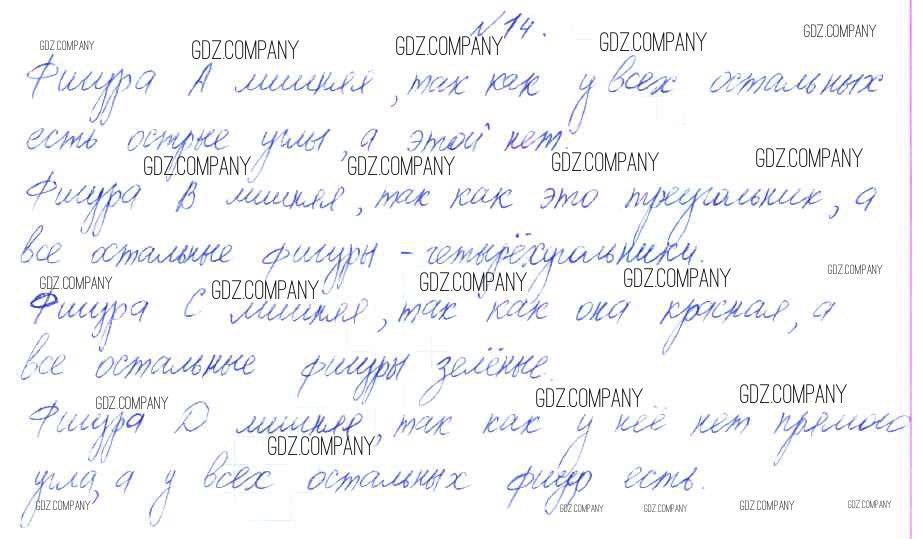 №14.
Фигура А лишняя, так как у всех остальных
есть острые углы, а этой нет.
Фигура В лишняя, так как это треугольник, а
все остальные фигуры - четырёхугольники.
Фигура С лишняя, так как она красная, а
все остальные фигуры зелёные.
Фигура D лишняя, так как у неё нет прямого
угла, а у всех остальных фигур есть.
GDZ.COMPANY GDZ.COMPANY GDZ.COMPANY GDZ.COMPANY GDZ.COMPANY
GDZ.COMPANY GDZ.COMPANY GDZ.COMPANY GDZ.COMPANY
GDZ.COMPANY GDZ.COMPANY GDZ.COMPANY GDZ.COMPANY GDZ.COMPANY
GDZ.COMPANY GDZ.COMPANY GDZ.COMPANY
GDZ.COMPANY
GDZ.COMPANY GDZ.COMPANY GDZ.COMPANY GDZ.COMPANY GDZ.COMPANY